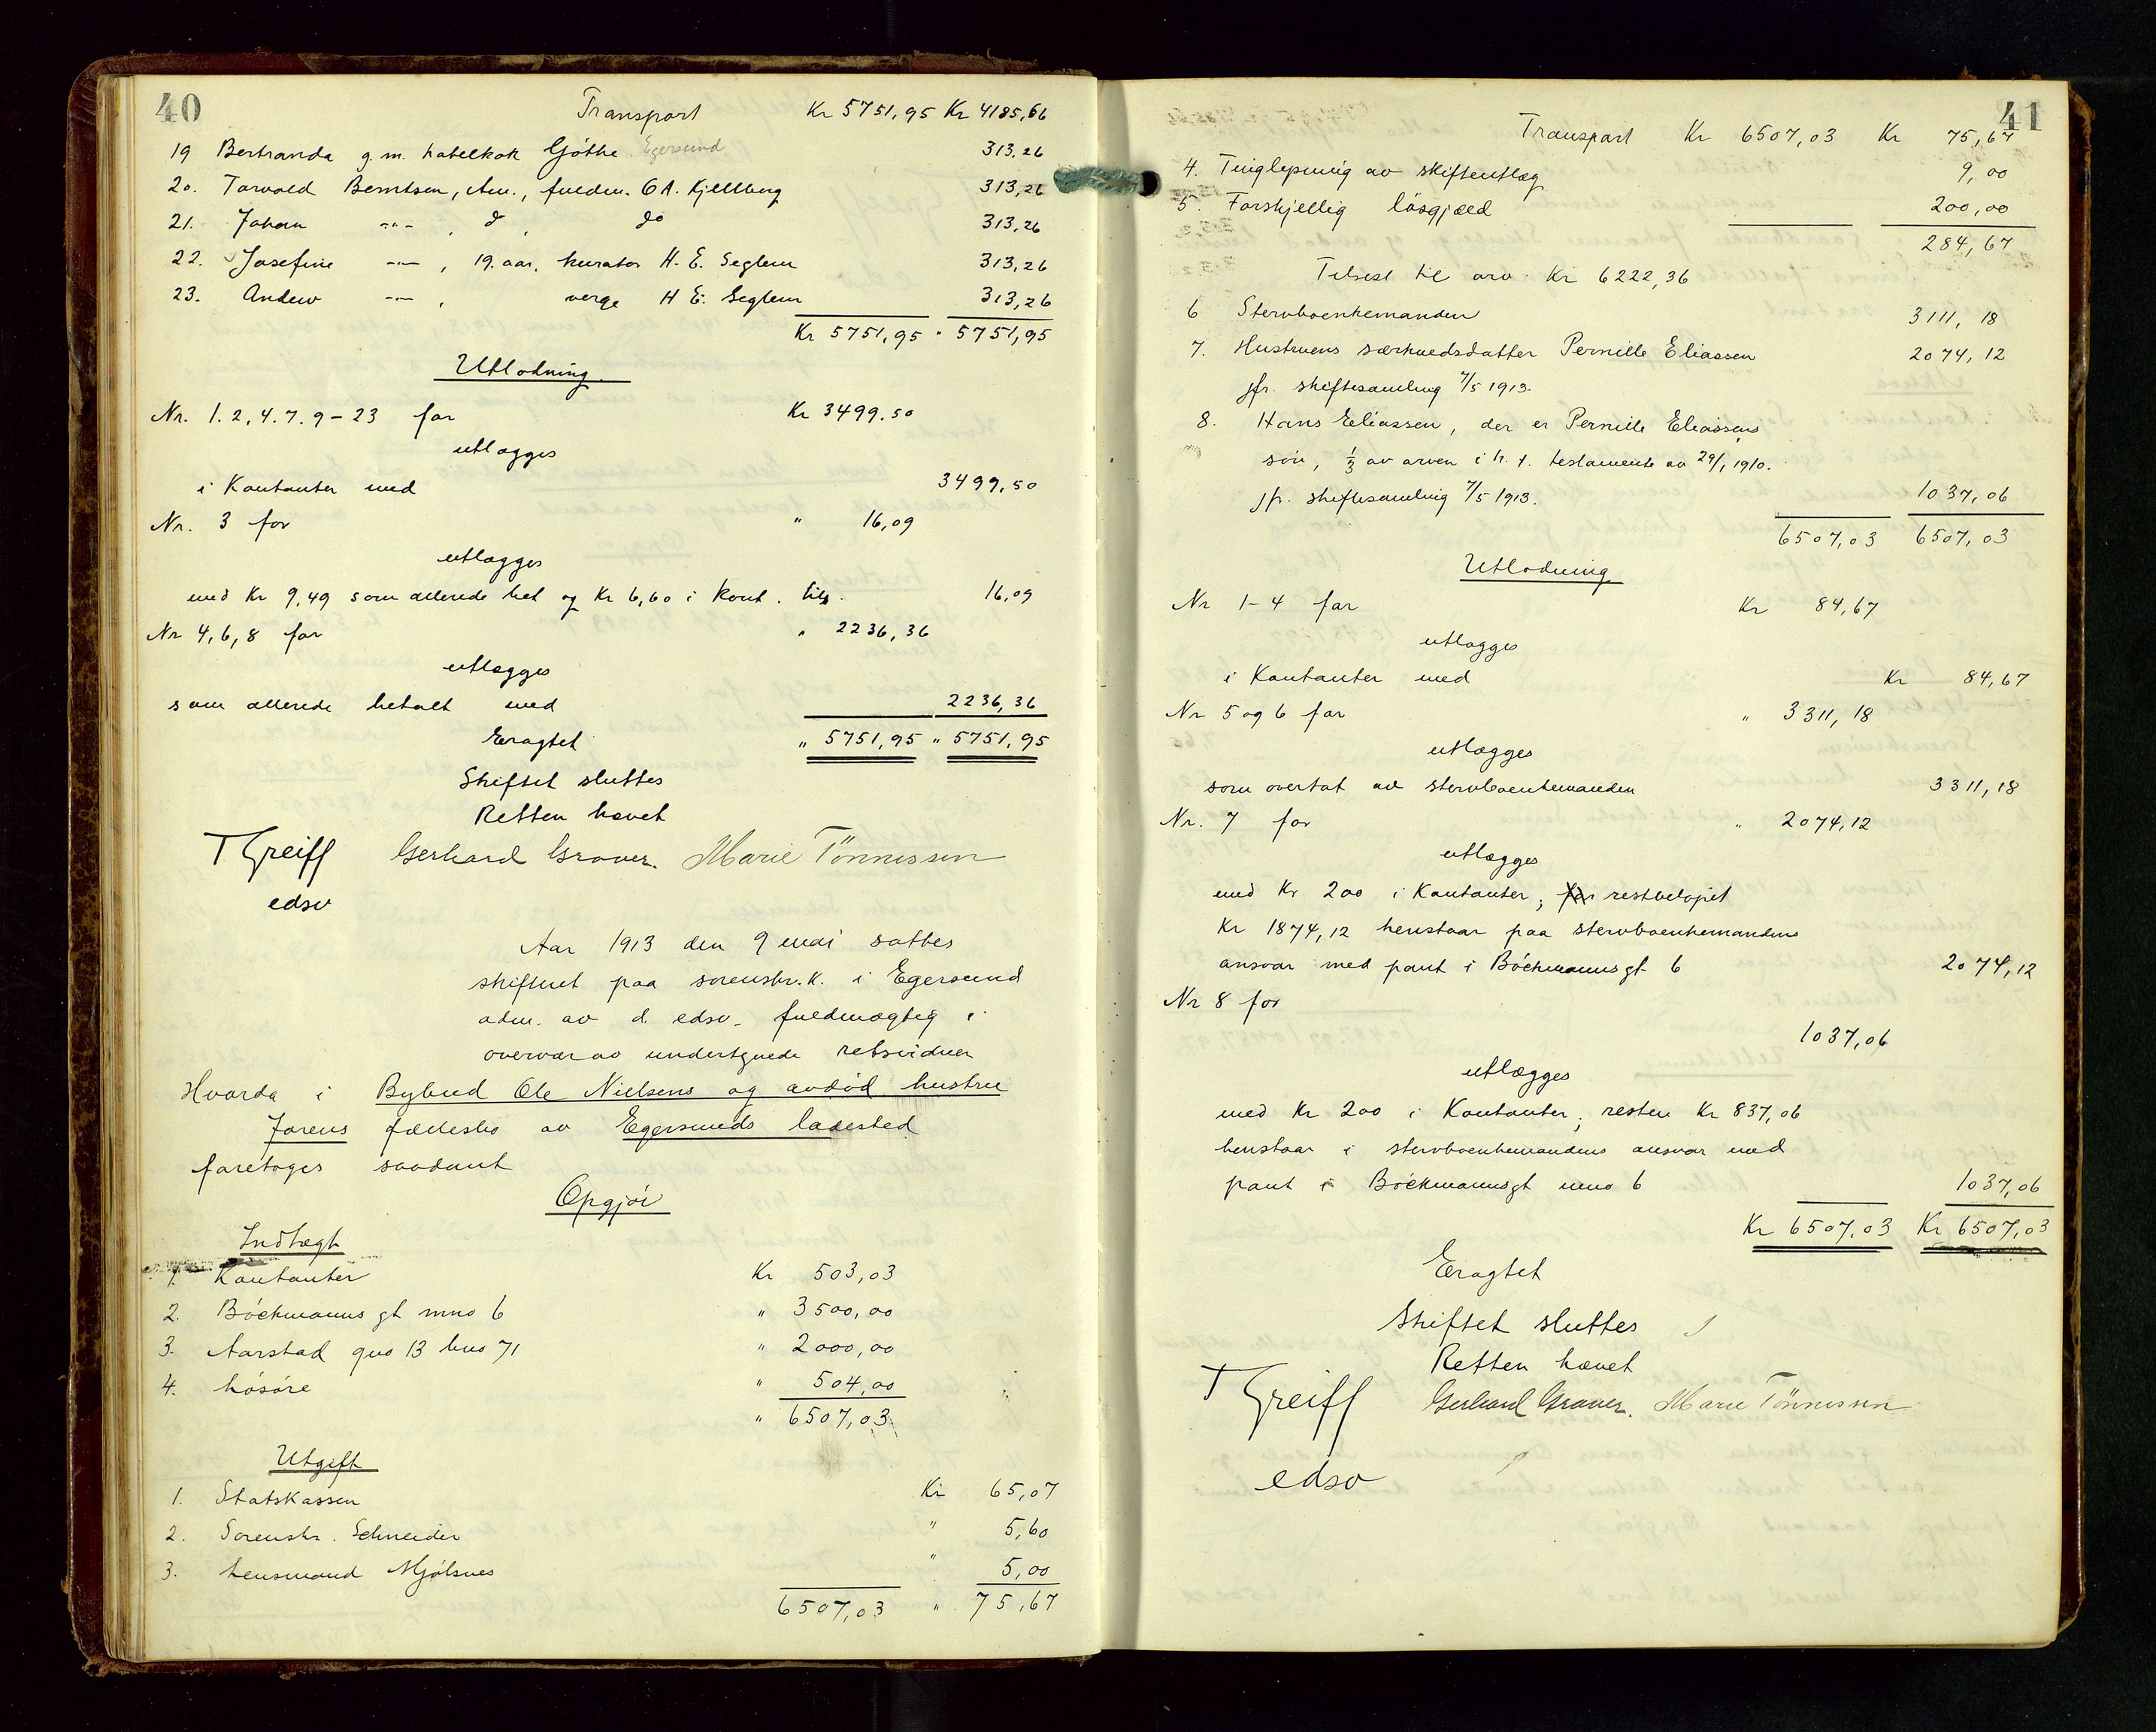 40
Transport Kr 5751,95 Kr 4185,66
19 Bertranda g.m. hotelkok Göthe Egersund 313,26
20. Torvald Berntsen, Am., fuldm. O A. Kjellberg 313,26
21. Johan -"- , d , do 313,26
22. Josefine -"- , 19. aar, kurator H. E. Seglem 313,26
23. Andew -"- , verge H E. Seglem 313,26
Kr 5751,95 " 5751,95
Utlodning.
Nr. 1. 2, 4. 7. 9 - 23 for Kr 3499.50
utlægges
i Kontanter med 3499,50
Nr. 3 for " 16,09
utlægges
med Kr 9,49 som allerede bet og Kr 6,60 i kont. tils. 16,09
Nr 4, 6, 8 for " 2236,36
utlægges
som allerede betalt med 2236,36
Eragtet " 5751,95 " 5751,95
Skiftet sluttes
Retten hævet
T Greiff Gerhard Graver. Marie Tönnessen
edsv
Aar 1913 den 9 mai sattes
skifteret paa sorenskr.k. i Egersund
adm. av d. edsv. fuldmægtig i
overvær av undertegnede retsvidner
Hvorda i Bybud Ole Nielsens og avdöd hustru
Jorens fællesbo av Egersunds ladested
foretoges saadant
Opgjör
Indtægt
1. Kontanter Kr 503,03
2. Böckmanns gt mno 6 " 3500,00
3. Aarstad gno 13 bno 71 " 2000,00
4. Lösöre " 504,00
" 6507,03
Utgift
1. Statskassen Kr 65,07
2. Sorenskr. Schneider " 5,60
3. Lensmand Mjölsnes " 5,00
6507,03 " 75,67
41
Transport Kr 6507,03 Kr 75,67
4. Tinglæsning av skifteutlæg 9,00
5. Forskjellig lösgjæld 200,00
284,67
Tilrest til arv Kr 6222,36
6 Stervboenkemanden 3111, 18
7. Hustruens særkuldsdatter Pernille Eliassen 2074, 12
jfr. skiftesamling 7/5 1913.
8. Hans Eliassen, der er Pernille Eliassens
sön, 1/3 av arven i h. t. testamente av 29/1 1910.
jfr. skiftesamling 7/5 1913. 1037,06
6507,03 6507,03
Utlodning
Nr 1-4 for Kr 84,67
utlægges
i Kontanter med Kr 84,67
Nr 5 og 6 for " 3311,18
utlægges
som overtat av stervboenkemanden 3311,18
Nr. 7 for " 2074,12
utlægges
med Kr 200 i Kontanter; for restbelöpet
Kr 1874,12 henstaar paa stervboenkemandens
ansvar med pant i Böckmannsgt 6 2074,12
Nr 8 for
1037,06
utlægges
med Kr 200 i Kontanter; resten Kr 837,06
henstaar i stervboenkemandens ansvar med
pant i Böckmannsgt mno 6 1037,06
Kr 6507,03 Kr 6507,03
Eragtet
Skiftet sluttes
Retten hævet
T Greiff Gerhard Graver. Marie Tönnessen
edsv